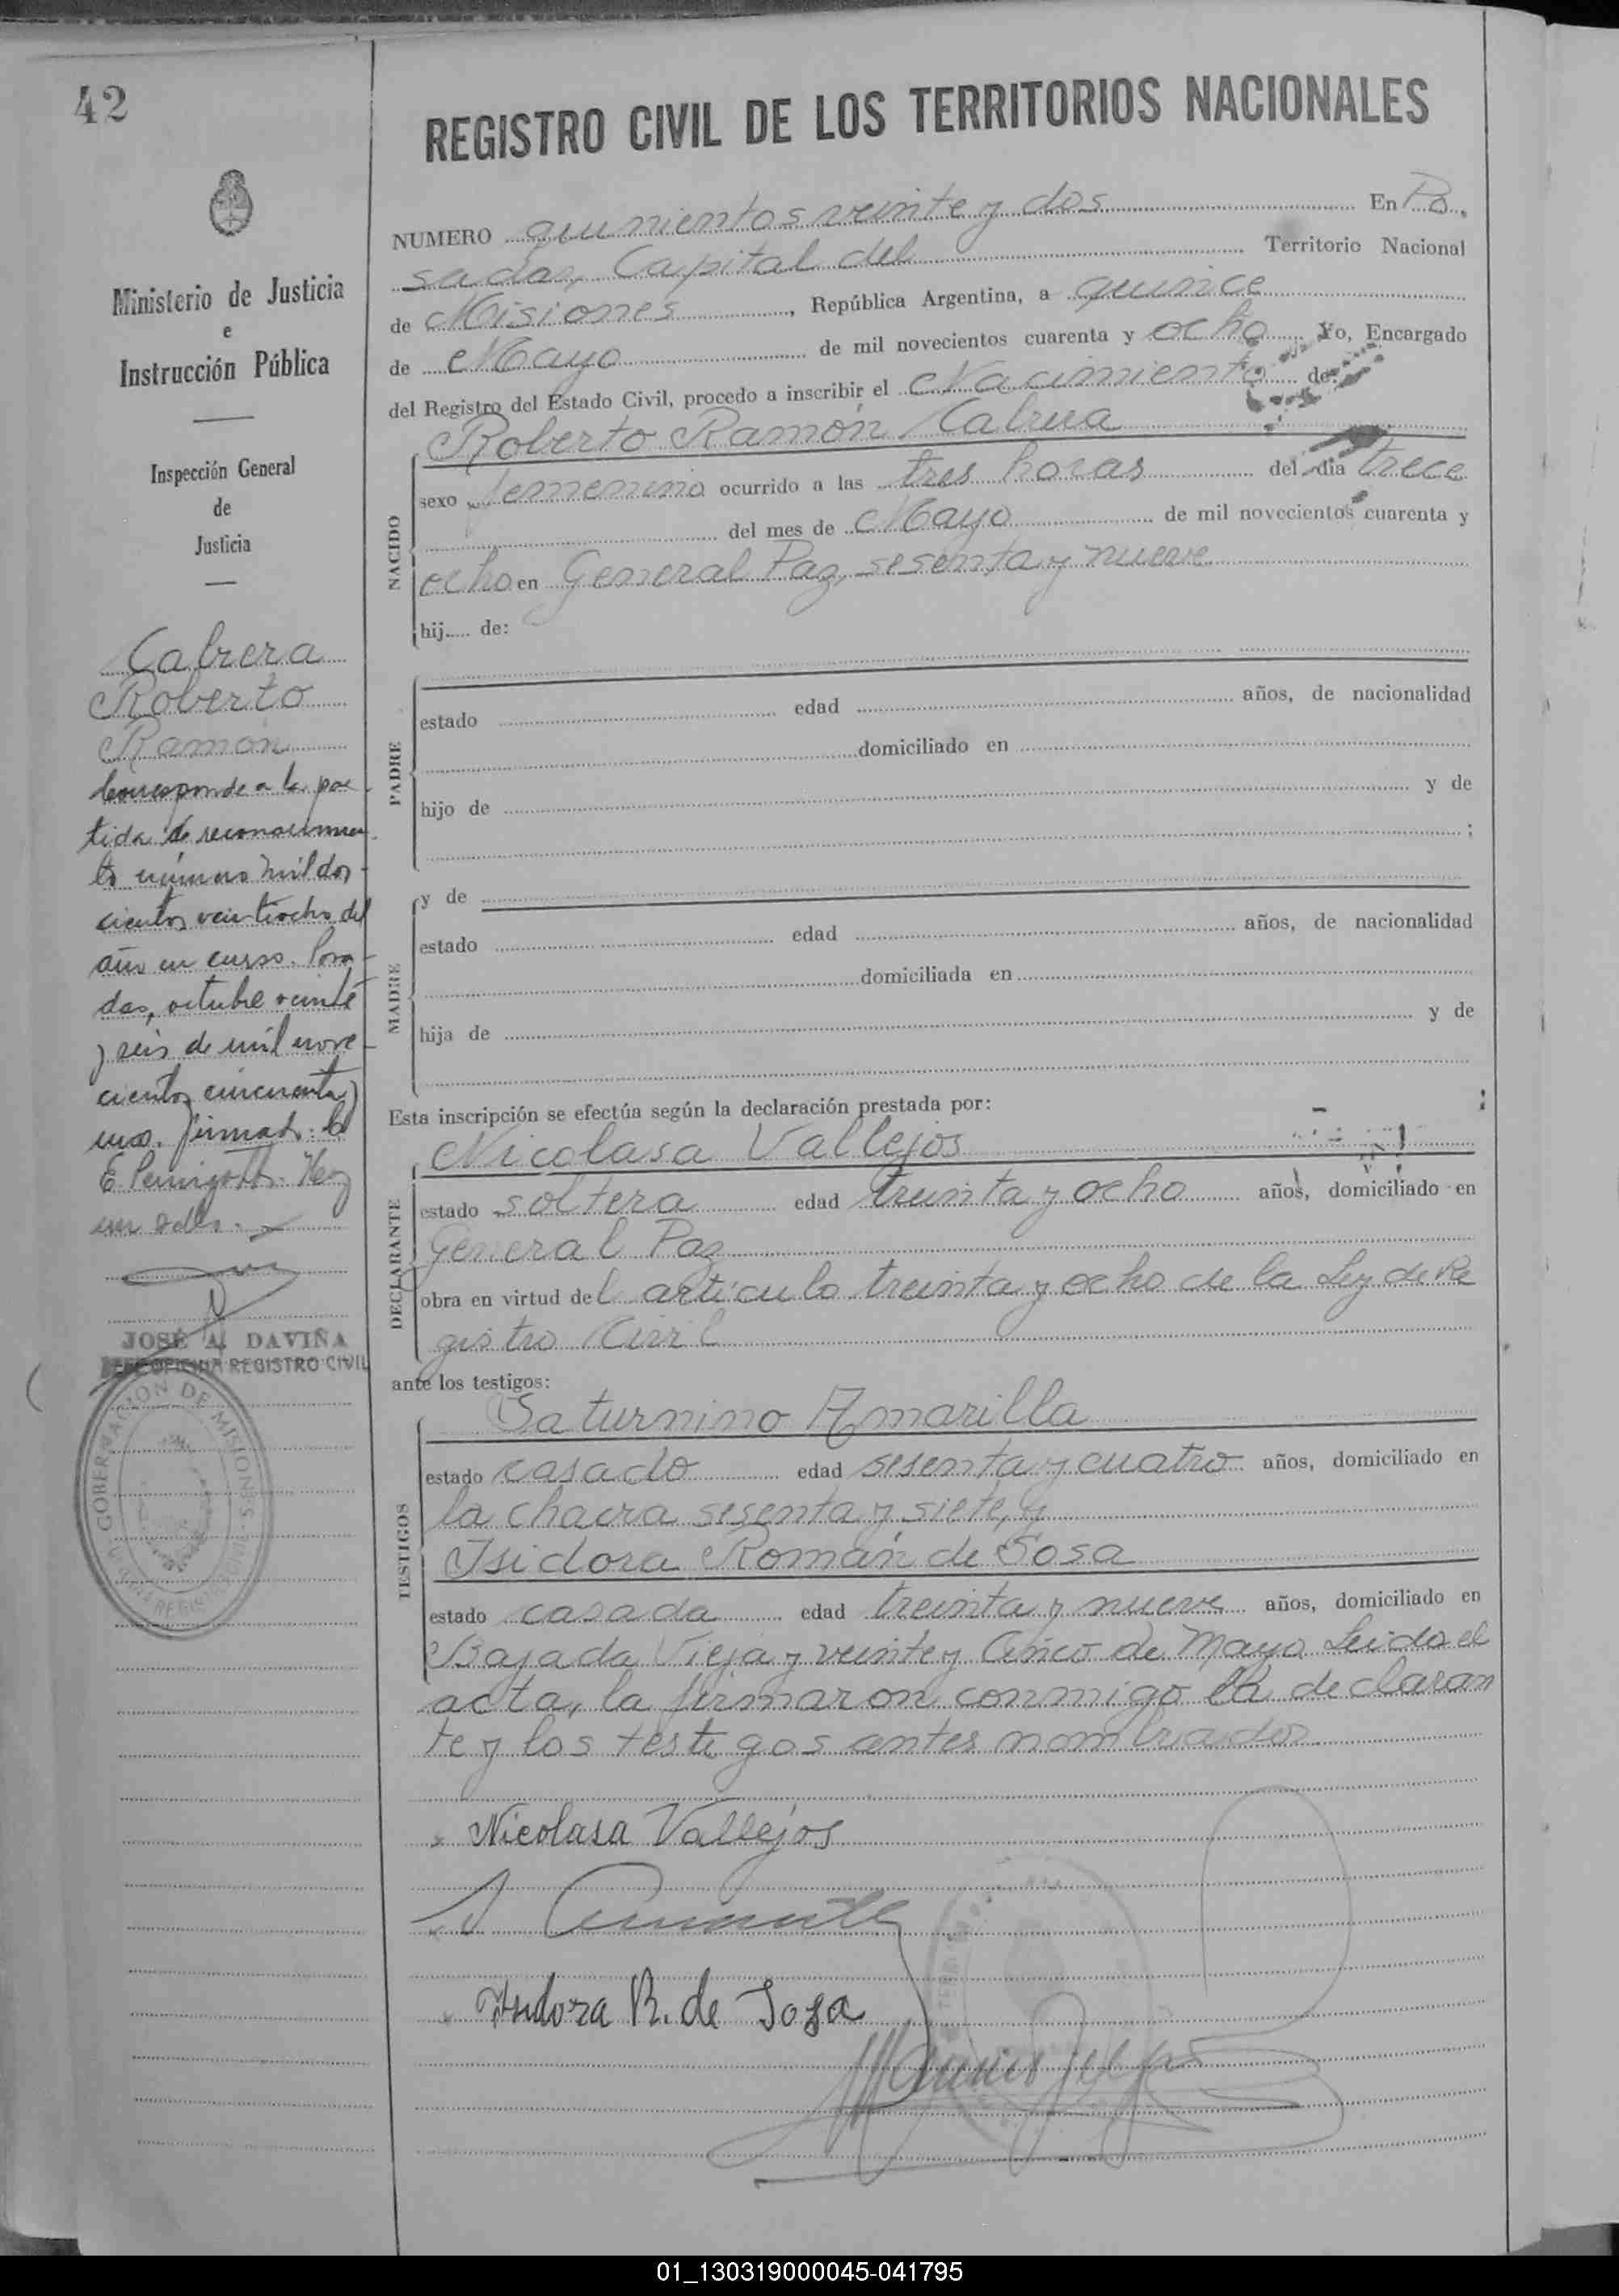 42
Ministerio de Justicia
e
Instrucción Pública
Inspección General
de
Justicia
Cabrera
Roberto
Ramón
Corresponde a la par
tida de reconocimien
to número mil dos
cientos veintiocho del
año en curso. Posa
das, octubre veinte
y seis de mil nove
cientos cincuenta y
uno. Firmado:
JOSÉ A. DAVIÑA
JEFE OFICINA REGISTRO CIVIL
GOBERNACION DE MISIONES
REGISTRO CIVIL DE LOS TERRITORIOS NACIONALES
NUMERO quinientos veinte y dos En Po
sadas, Capital del Territorio Nacional
de Misiones, República Argentina, a quince
de Mayo de mil novecientos cuarenta y ocho Yo, Encargado
del Registro del Estado Civil, procedo a inscribir el Nacimiento de
Roberto Ramón Cabrera
NACIDO
sexo femenino ocurrido a las tres horas del día trece
del mes de Mayo de mil novecientos cuarenta y
ocho en General Paz, sesenta y nueve
hij..... de:
PADRE
estado edad años, de nacionalidad
domiciliado en
hijo de y de
;
MADRE
y de
estado edad años, de nacionalidad
domiciliada en
hija de y de
Esta inscripción se efectúa según la declaración prestada por:
DECLARANTE
Nicolasa Vallejos
estado soltera edad treinta y ocho años, domiciliado en
General Paz
obra en virtud del artículo treinta y ocho de la Ley de Re
gistro Civil
ante los testigos:
TESTIGOS
Saturnino Amarilla
estado casado edad sesenta y cuatro años, domiciliado en
la chacra sesenta y siete, y
Isidora Román de Sosa
estado casada edad treinta y nueve años, domiciliado en
Bajada Vieja y veinte y Cinco de Mayo. Leida el
acta, la firmaron conmigo la declaran
te y los testigos antes nombrados
Nicolasa Vallejos
Isidora R. de Sosa
01_130319000045-041795